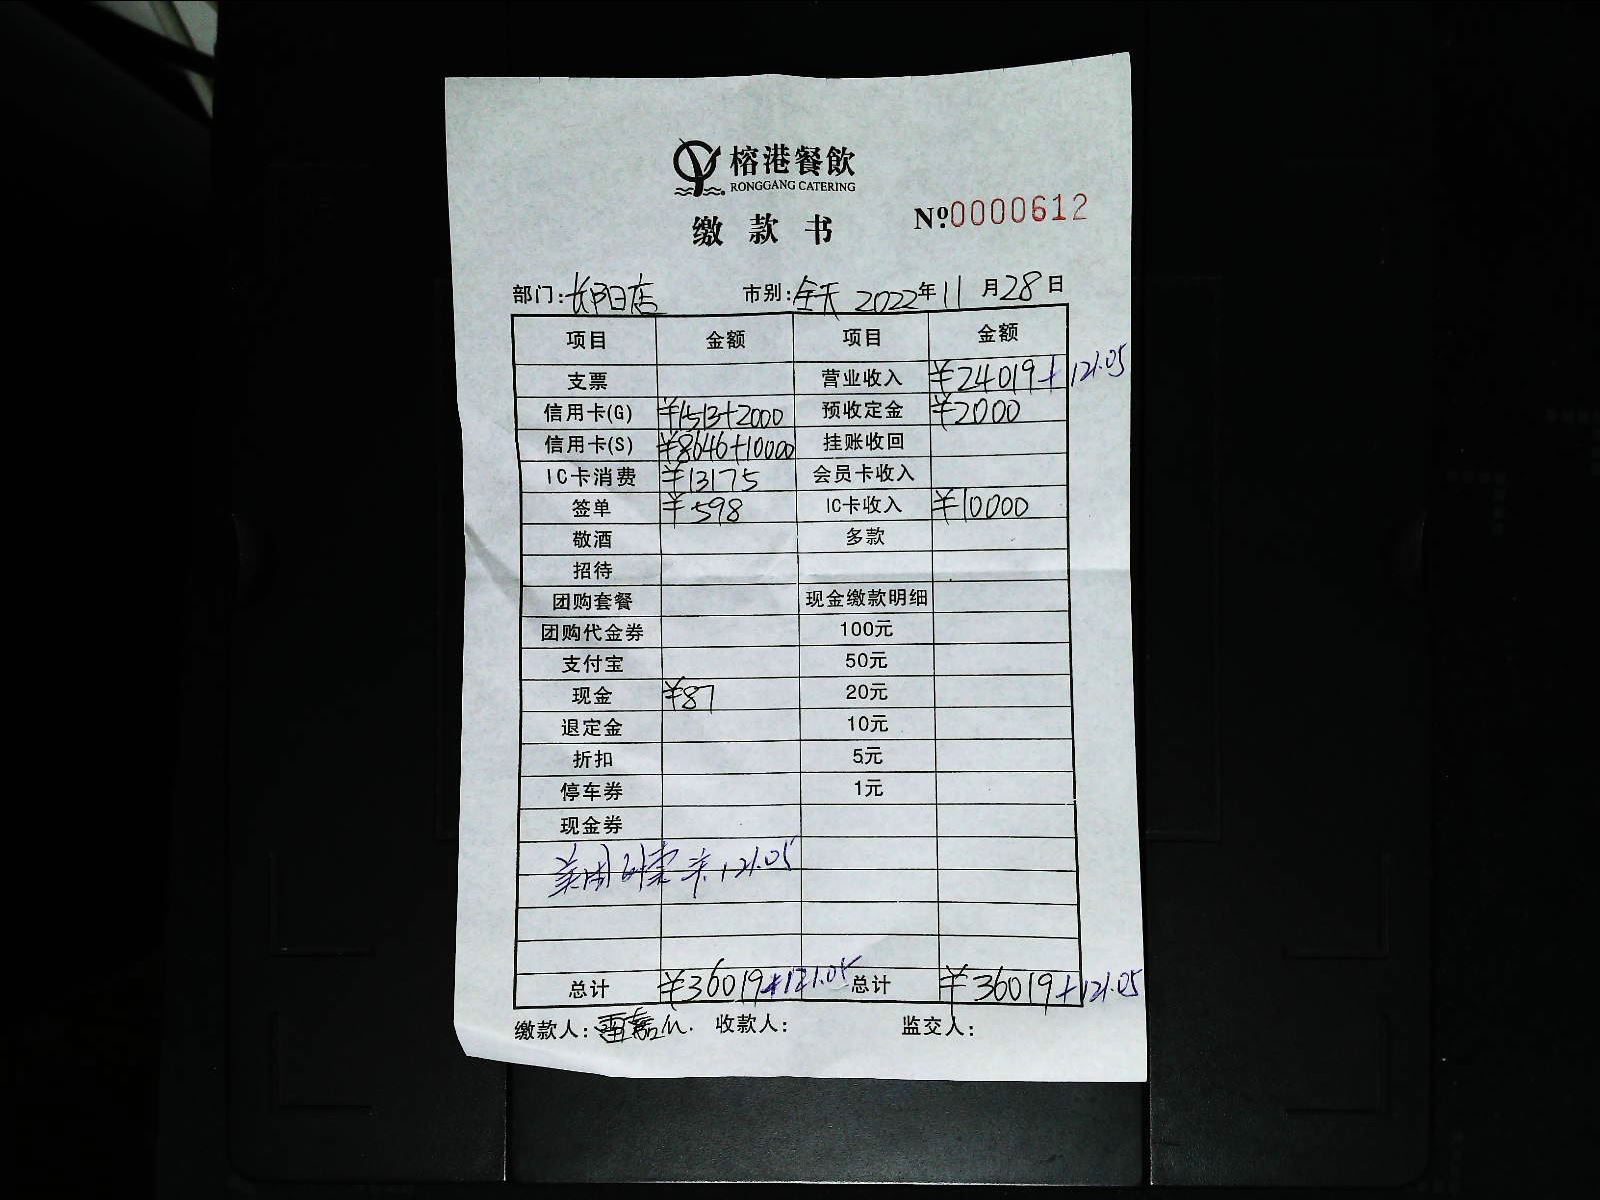 榕港餐飲
RONGGANG CATERING
缴款书 Nº.0000612
部门:长阳店 市别:全天 2022年11月28日
项目 金额 项目 金额
支票 营业收入 ¥24019+121.05
信用卡(G) ¥1513+2000 预收定金 ¥2000
信用卡(S) ¥8646+10000 挂账收回
IC卡消费 ¥13175 会员卡收入
签单 ¥598 IC卡收入 ¥10000
敬酒 多款
招待
团购套餐 现金缴款明细
团购代金券 100元
支付宝 50元
现金 ¥87 20元
退定金 10元
折扣 5元
停车券 1元
现金券
美团外卖 121.05
总计 ¥36019+121.05 总计 ¥36019+121.05
缴款人: 收款人: 监交人: